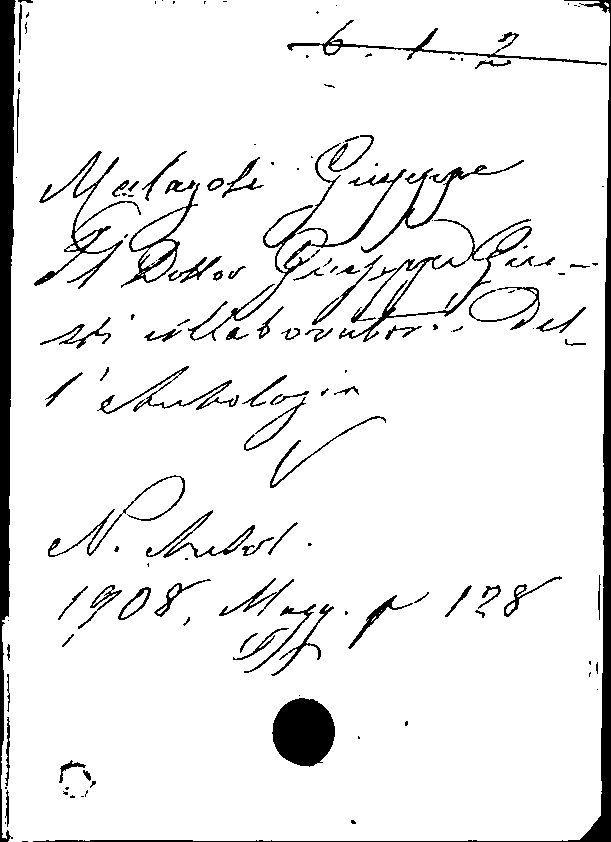 6. 1. 2
Malagoli Giuseppe
Il Dottor Giuseppe Giu-
sti collaborator. Del-
l'Antologia
N. Antol.
1908, Magg. p 128